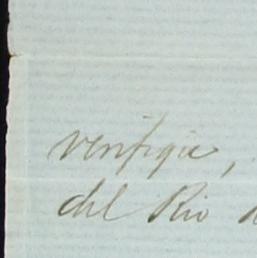 verifique,
del Rio